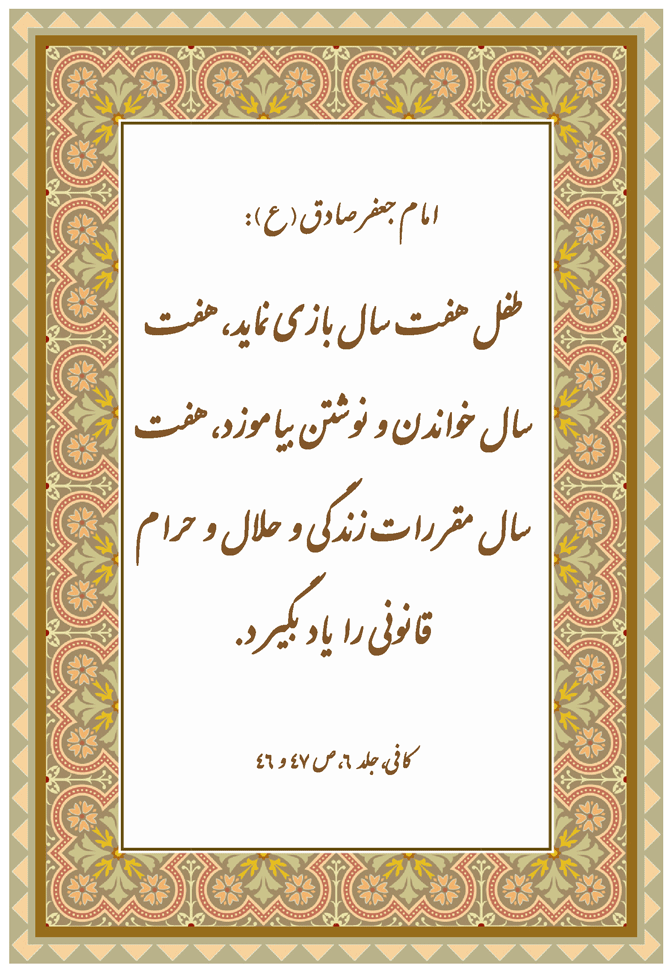 امام جعفر صادق (ع):
طفل هفت سال بازی نماید، هفت
سال خواندن و نوشتن بیاموزد، هفت
سال مقررات زندگی و حلال و حرام
قانونی را یاد بگیرد.
کافی، جلد ٦، ص ٤٧ و ٤٦